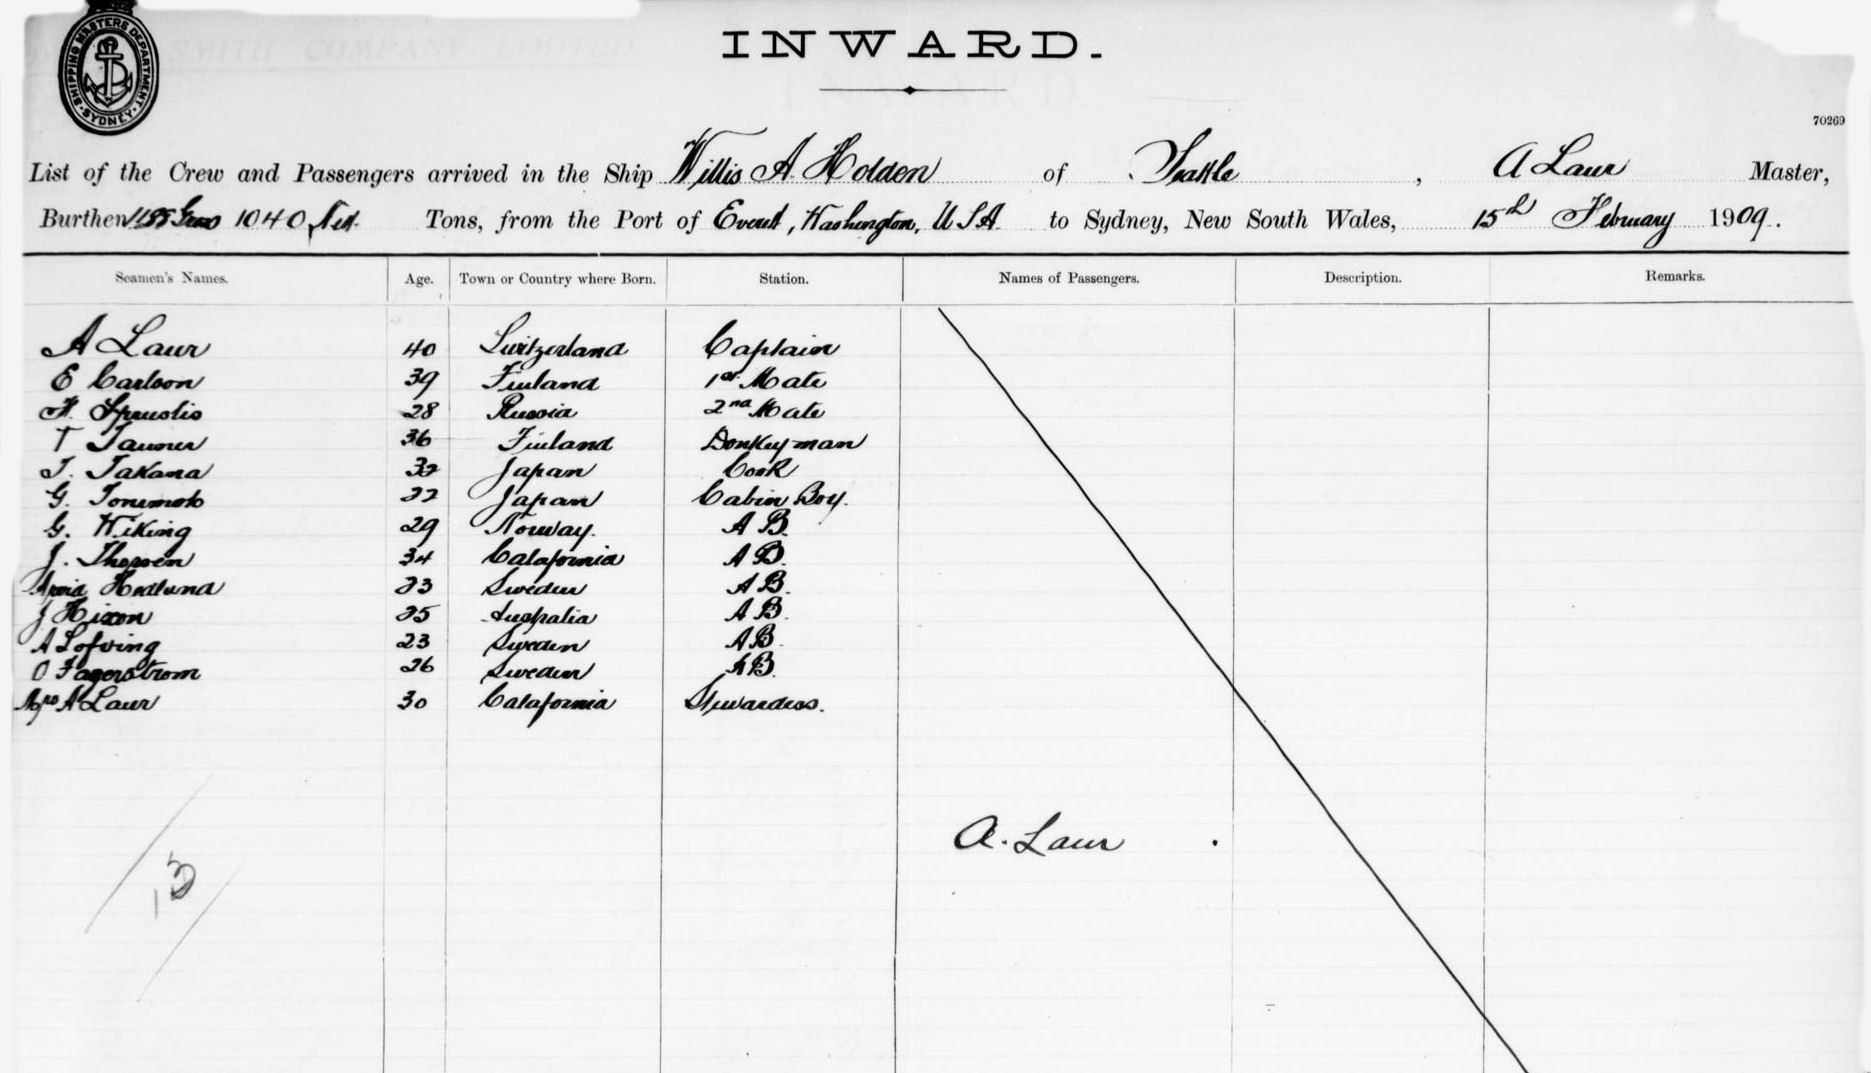 SHIPPING MASTERS DEPARTMENT
SYDNEY
INWARD.
70269
List of the Crew and Passengers arrived in the Ship Willis A. Holden of Seattle, A Laur Master,
Burthen Gross 1040 Net. Tons, from the Port of Everett, Washington, U S A to Sydney, New South Wales, 15th February 1909.
Seamen's Names. Age. Town or Country where Born. Station. Names of Passengers. Description. Remarks.
A Laur 40 Switzerland Captain
E Carlson 39 Finland 1st Mate
28 Russia 2nd Mate
T 36 Finland Donkeyman
T. Takana 32 Japan Cook
G. 22 Japan Cabin Boy.
G. Wiking 29 Norway. A B.
J. 34 Calafornia A B.
Arvid Hedlund 23 Sweden A B.
J Hixon 25 Australia A B.
A Lofving 23 Sweden A B.
O Fagerstrom 26 Sweden A B.
Mrs A Laur 30 Calafornia Stewardess.
A. Laur
13